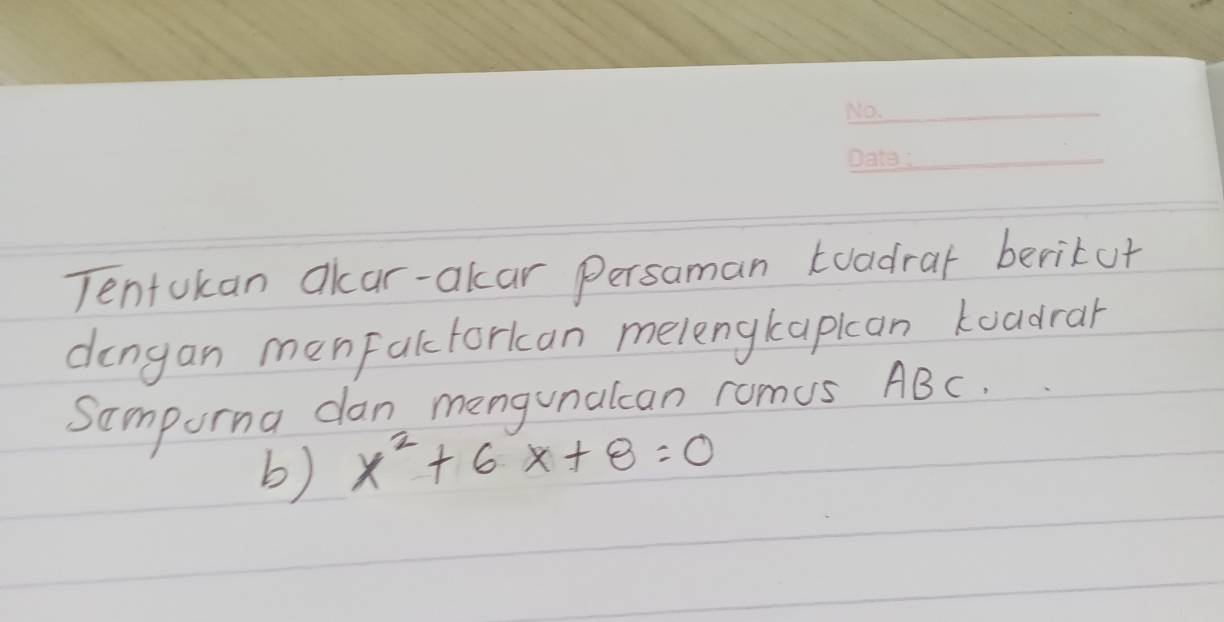 No.
Date :
Tentukan akar-akar Persaman kuadrat berikut
dengan menfaktorkan melengkapkan kuadrat
Sempurna dan mengunakan rumus ABC. .
b) x² + 6 x + 8 = 0